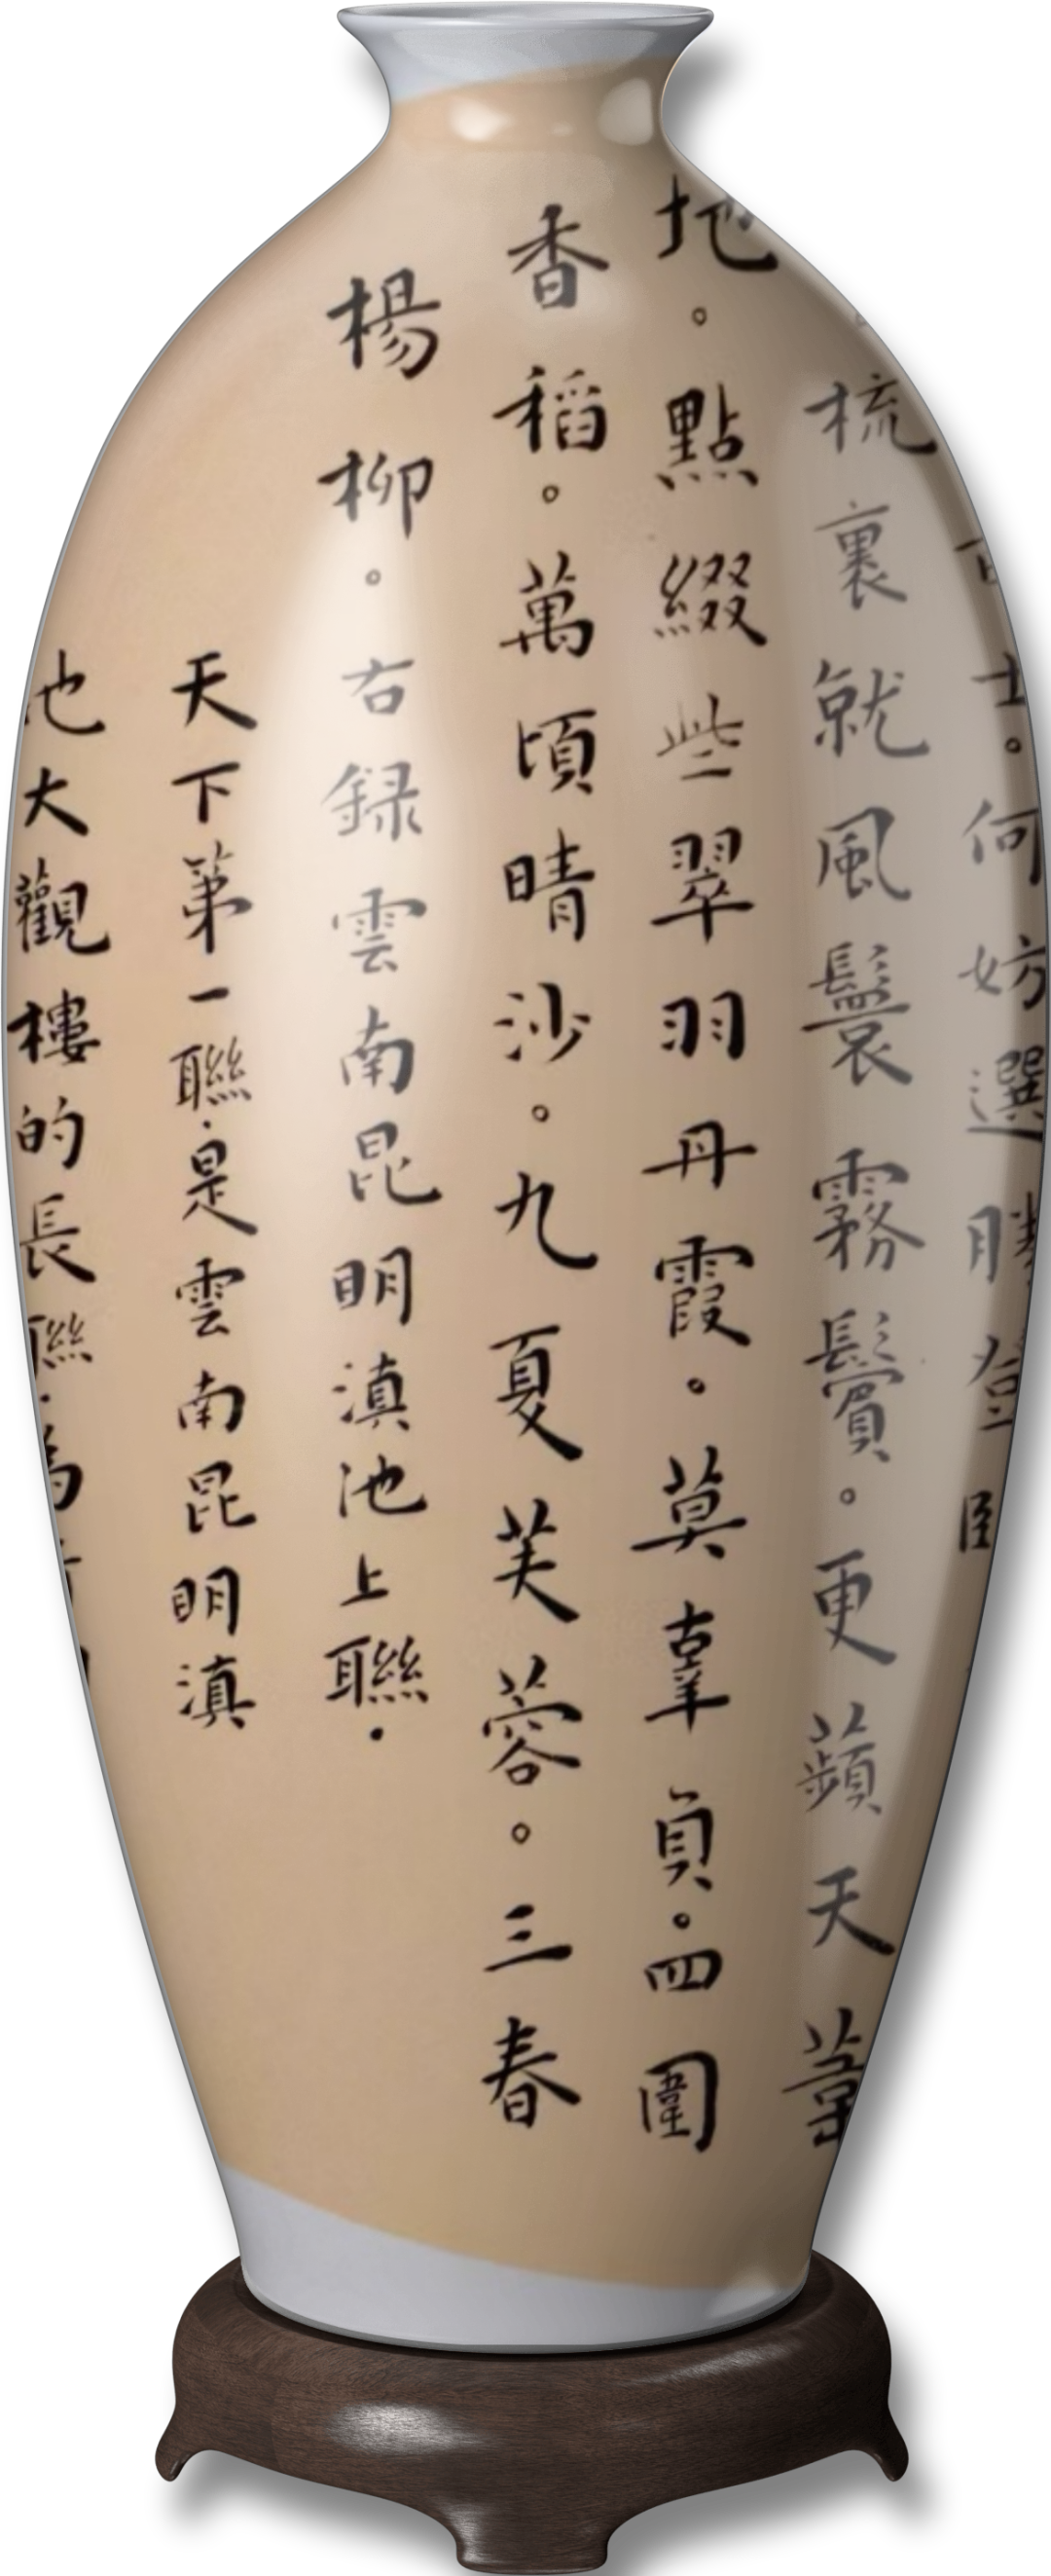 士。何妨選勝登
梳裹就風鬟霧鬢。更蘋天葦
地。點綴些翠羽丹霞。莫辜負。四圍
香稻。萬頃晴沙。九夏芙蓉。三春
楊柳。右録雲南昆明滇池上聯.
天下第一聯.是雲南昆明滇
池大觀樓的長聯.為